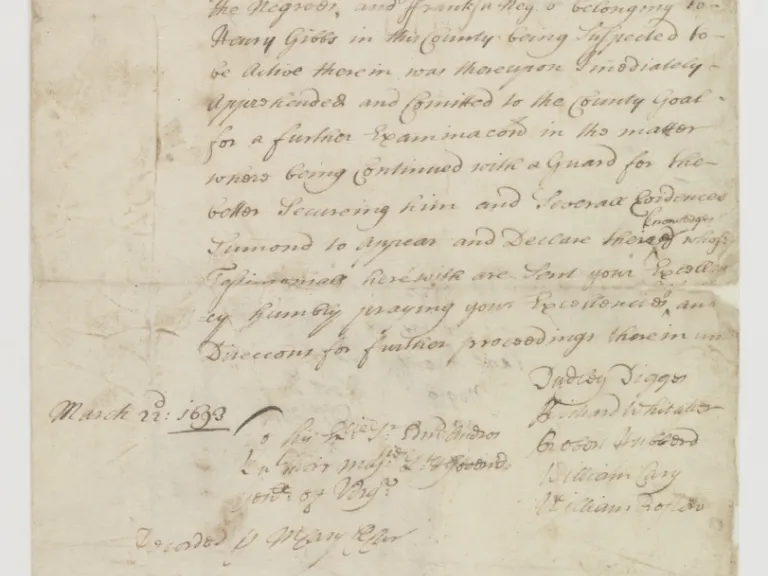 the Negroes, and Frank a Neg.o belonging to
Henry Gibbs in this County being Suspected to
be Active therein was thereupon Imediately
Apprehended and Comitted to the County Goal
for a further Examinacon in the matter
where being Continued with a Guard for the
better Secureing him and Severall Evidences
Sumond to Appear and Declare their Knowledges whose
Testimonials herewith are Sent your Excellen
cy humbly praying your Excellencies and
Direccons for further proceedings therein
Dudley Digges
March 22: 1693
Richard Whitaker
o his Sr. Edm Andros
Hubberd
their Majties
William Cary
Genll of Virga
William
Recorded p